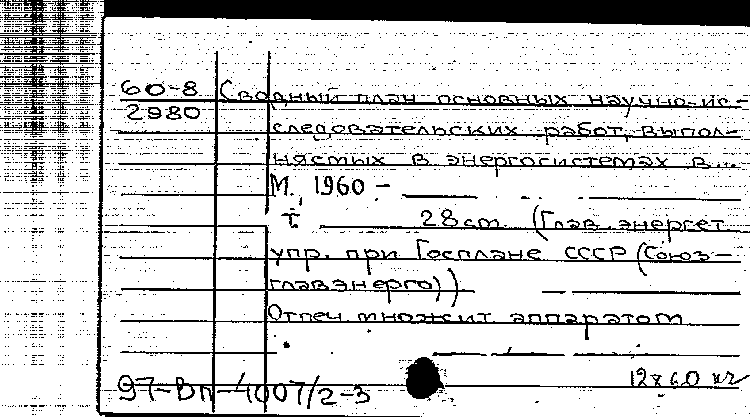 60-8 Сводный план основных научно-ис-
2980 следовательских работ, выпол-
няемых в энергосистемах в...
М., 1960 -
т. 28 см (Глав. энергет
упр. при Госплане СССР (Союз-
главэнерго))
Отпеч. множит. аппаратом
97-ВП-4007/2-3